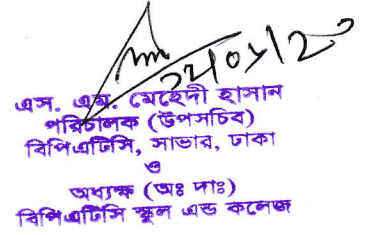 এস. এম. মেহেদী হাসান
পরিচালক (উপসচিব)
বিপিএটিসি, সাভার, ঢাকা
ও
অধ্যক্ষ (অঃ দাঃ)
বিপিএটিসি স্কুল এন্ড কলেজ